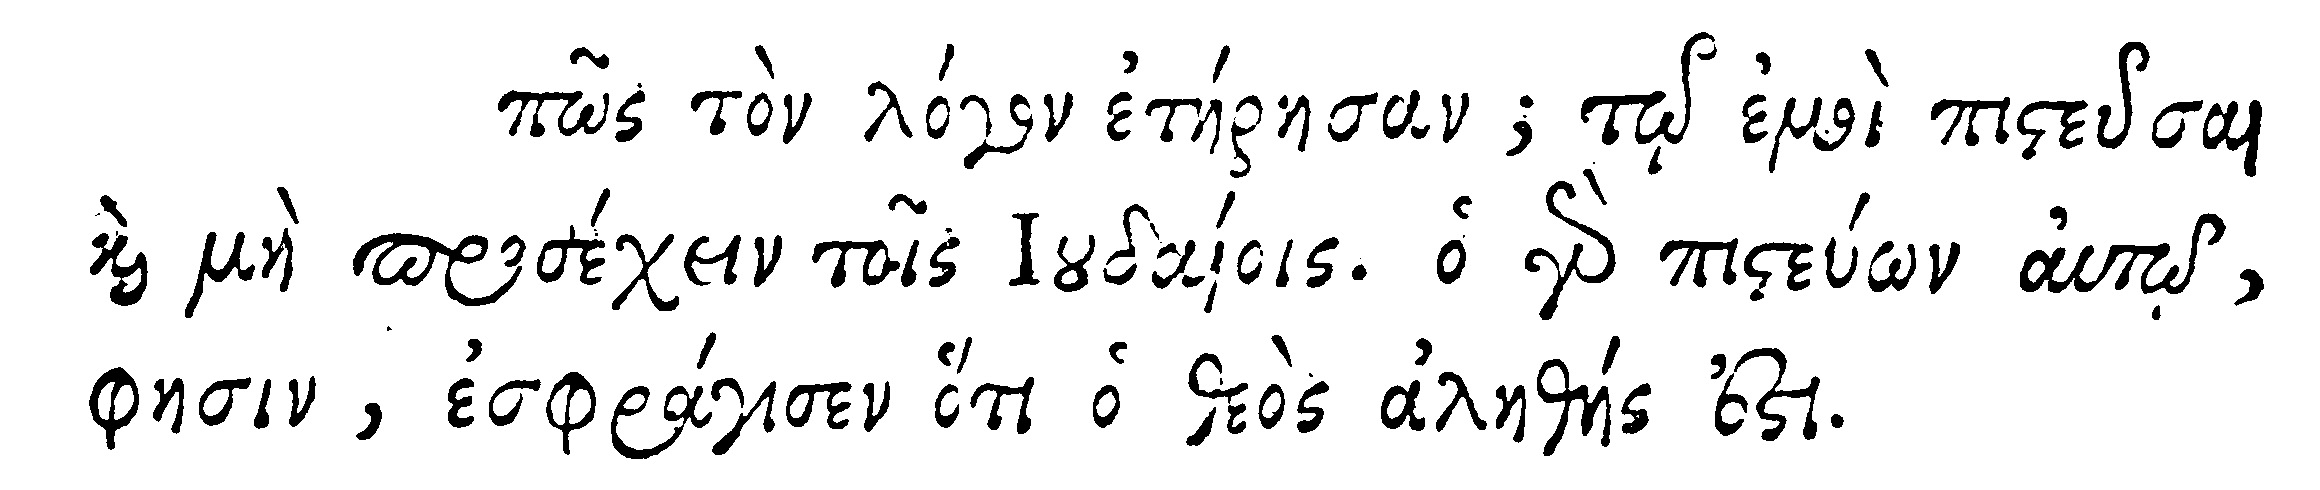 πῶς τὸν λόγον ἐτήρησαν; τῷ ἐμοὶ πιστεῦσαι
καὶ μὴ προσέχειν τοῖς Ἰουδαίοις. ὁ γὰρ πιστεύων αὐτῷ,
φησιν, ἐσφράγισεν ὅτι ὁ θεὸς ἀληθής ἐστι.